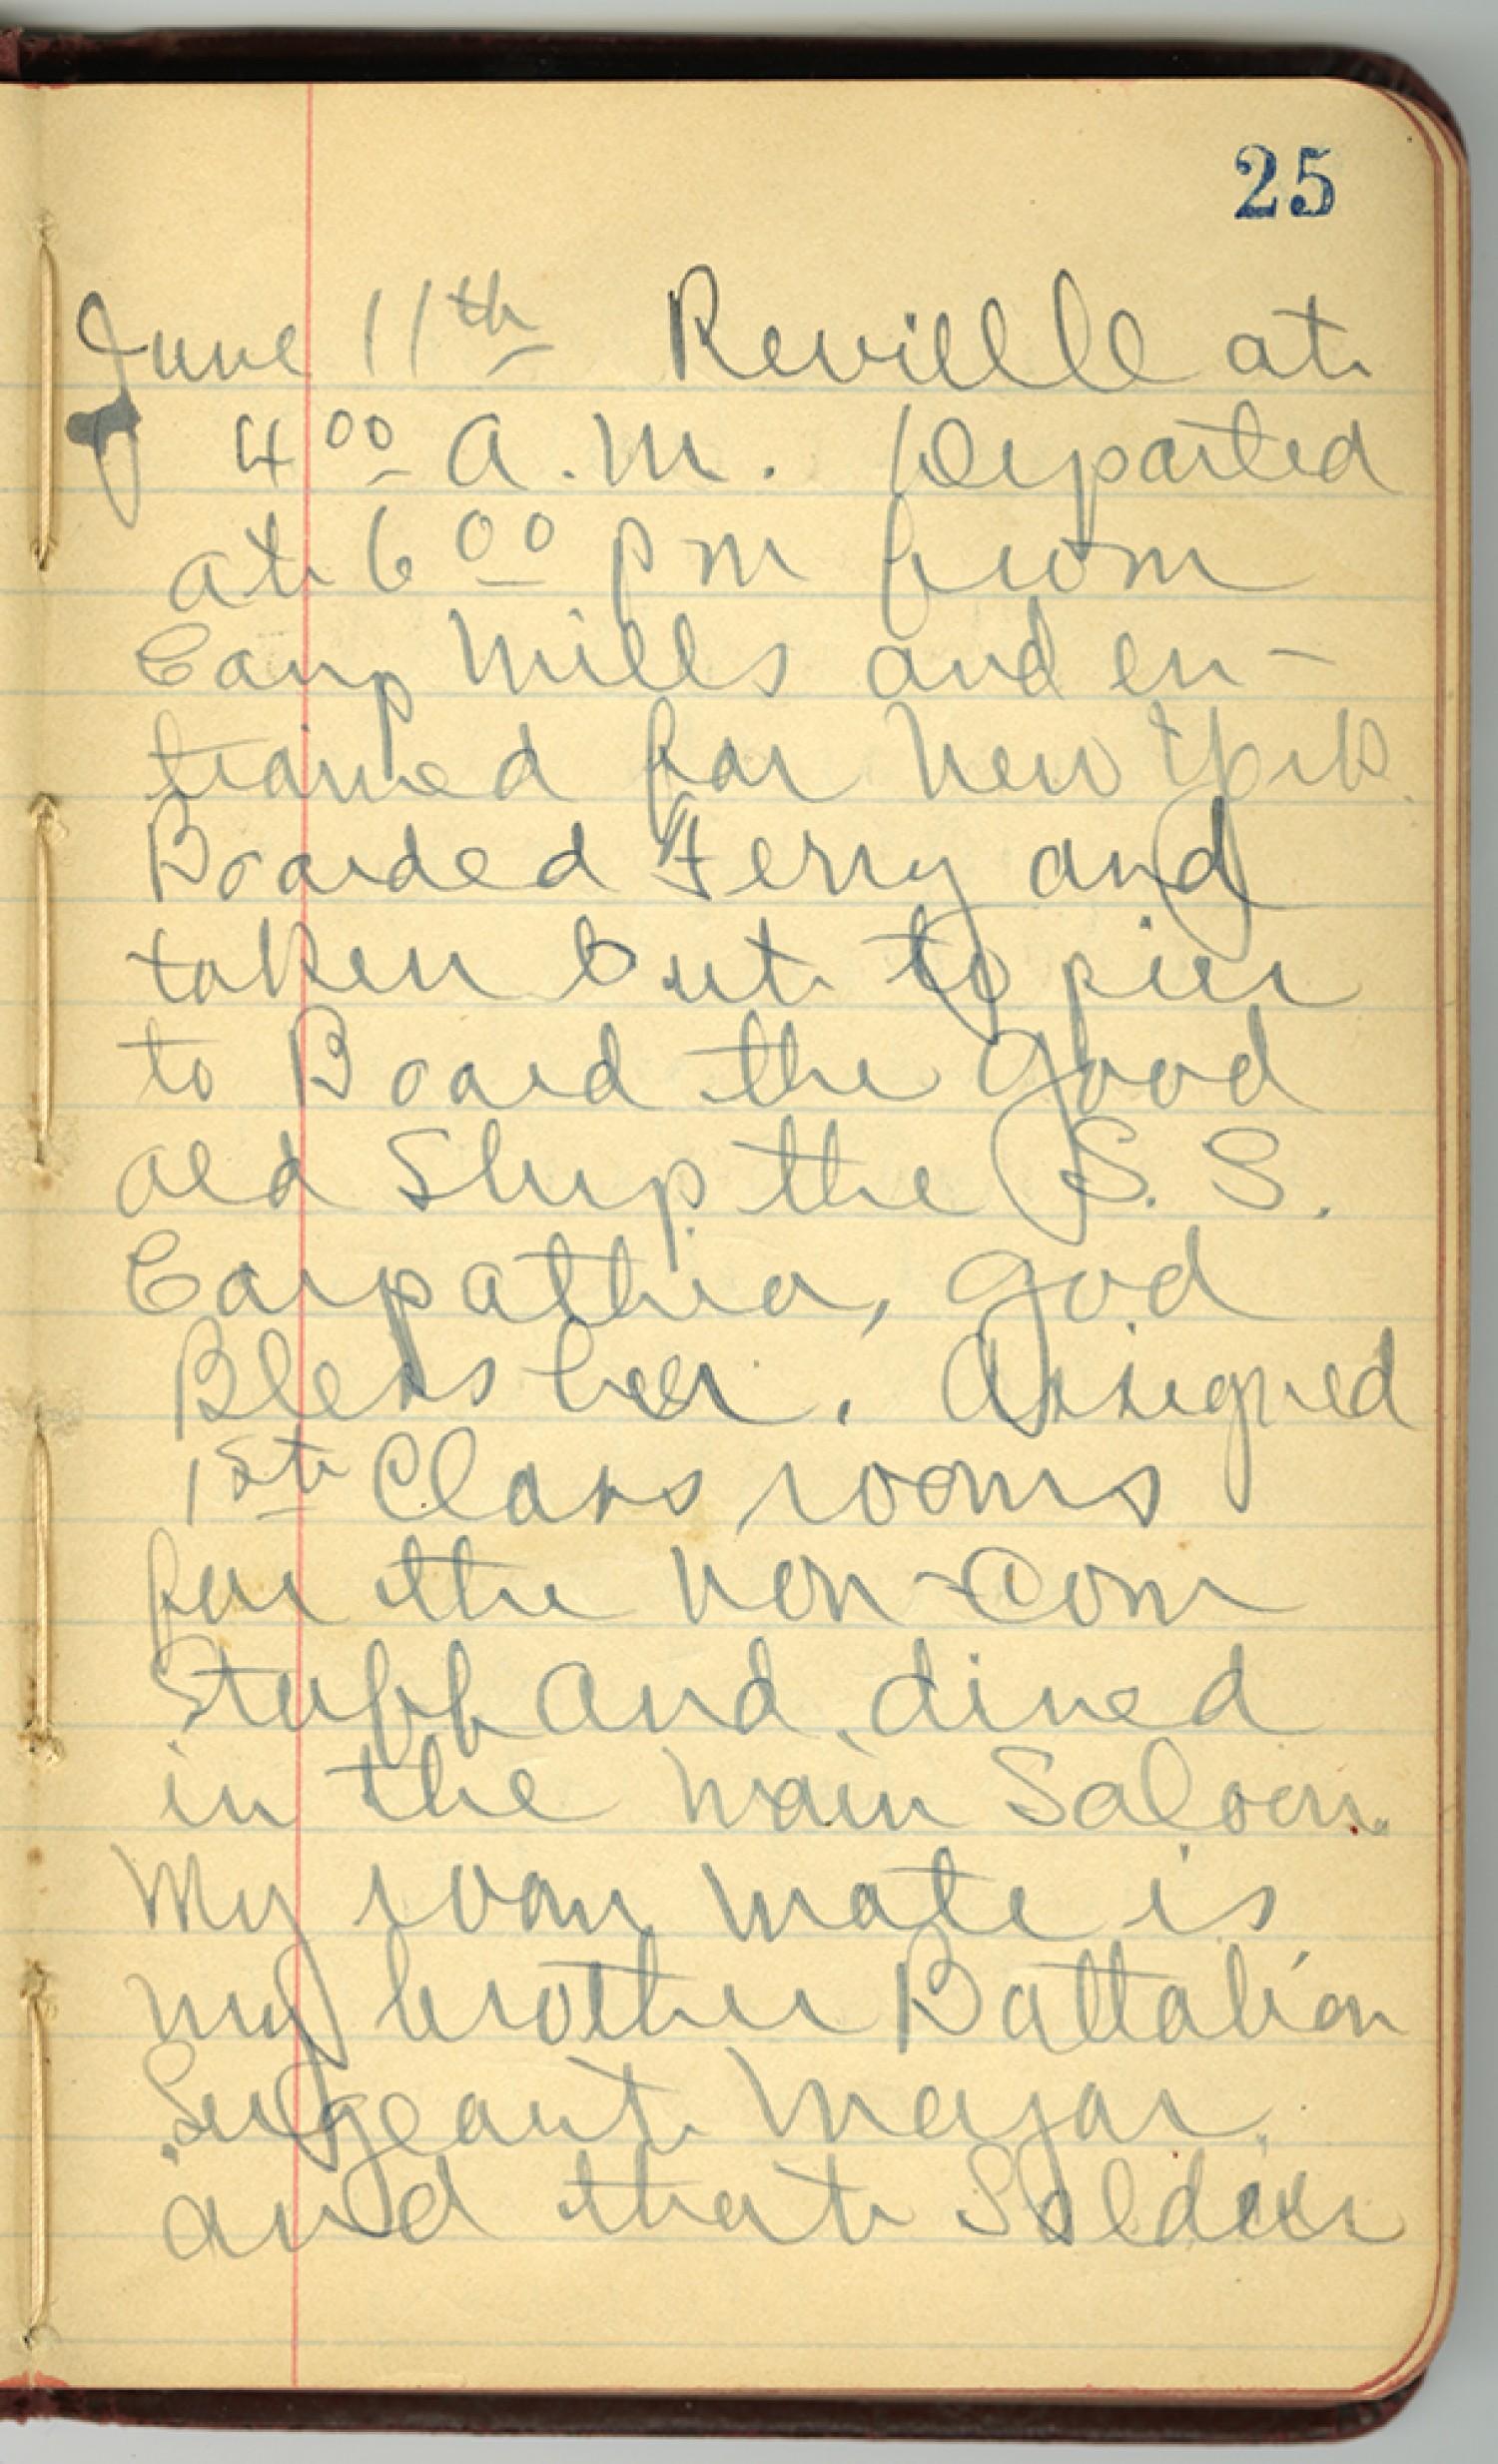 25
June 11th Revielle at
4 00 A.M. Departed
at 6 00 pm from
Camp Mills and en-
trained for New York.
Boarded Ferry and
taken out to pier
to Board the good
old Ship the S. S.
Carpathia, God
Bless her. Assigned
1st Class rooms
for the non-com
Staff and dined
in the main Saloon.
My room mate is
my brother Battalion
Sergeant Major.
and that Soldier